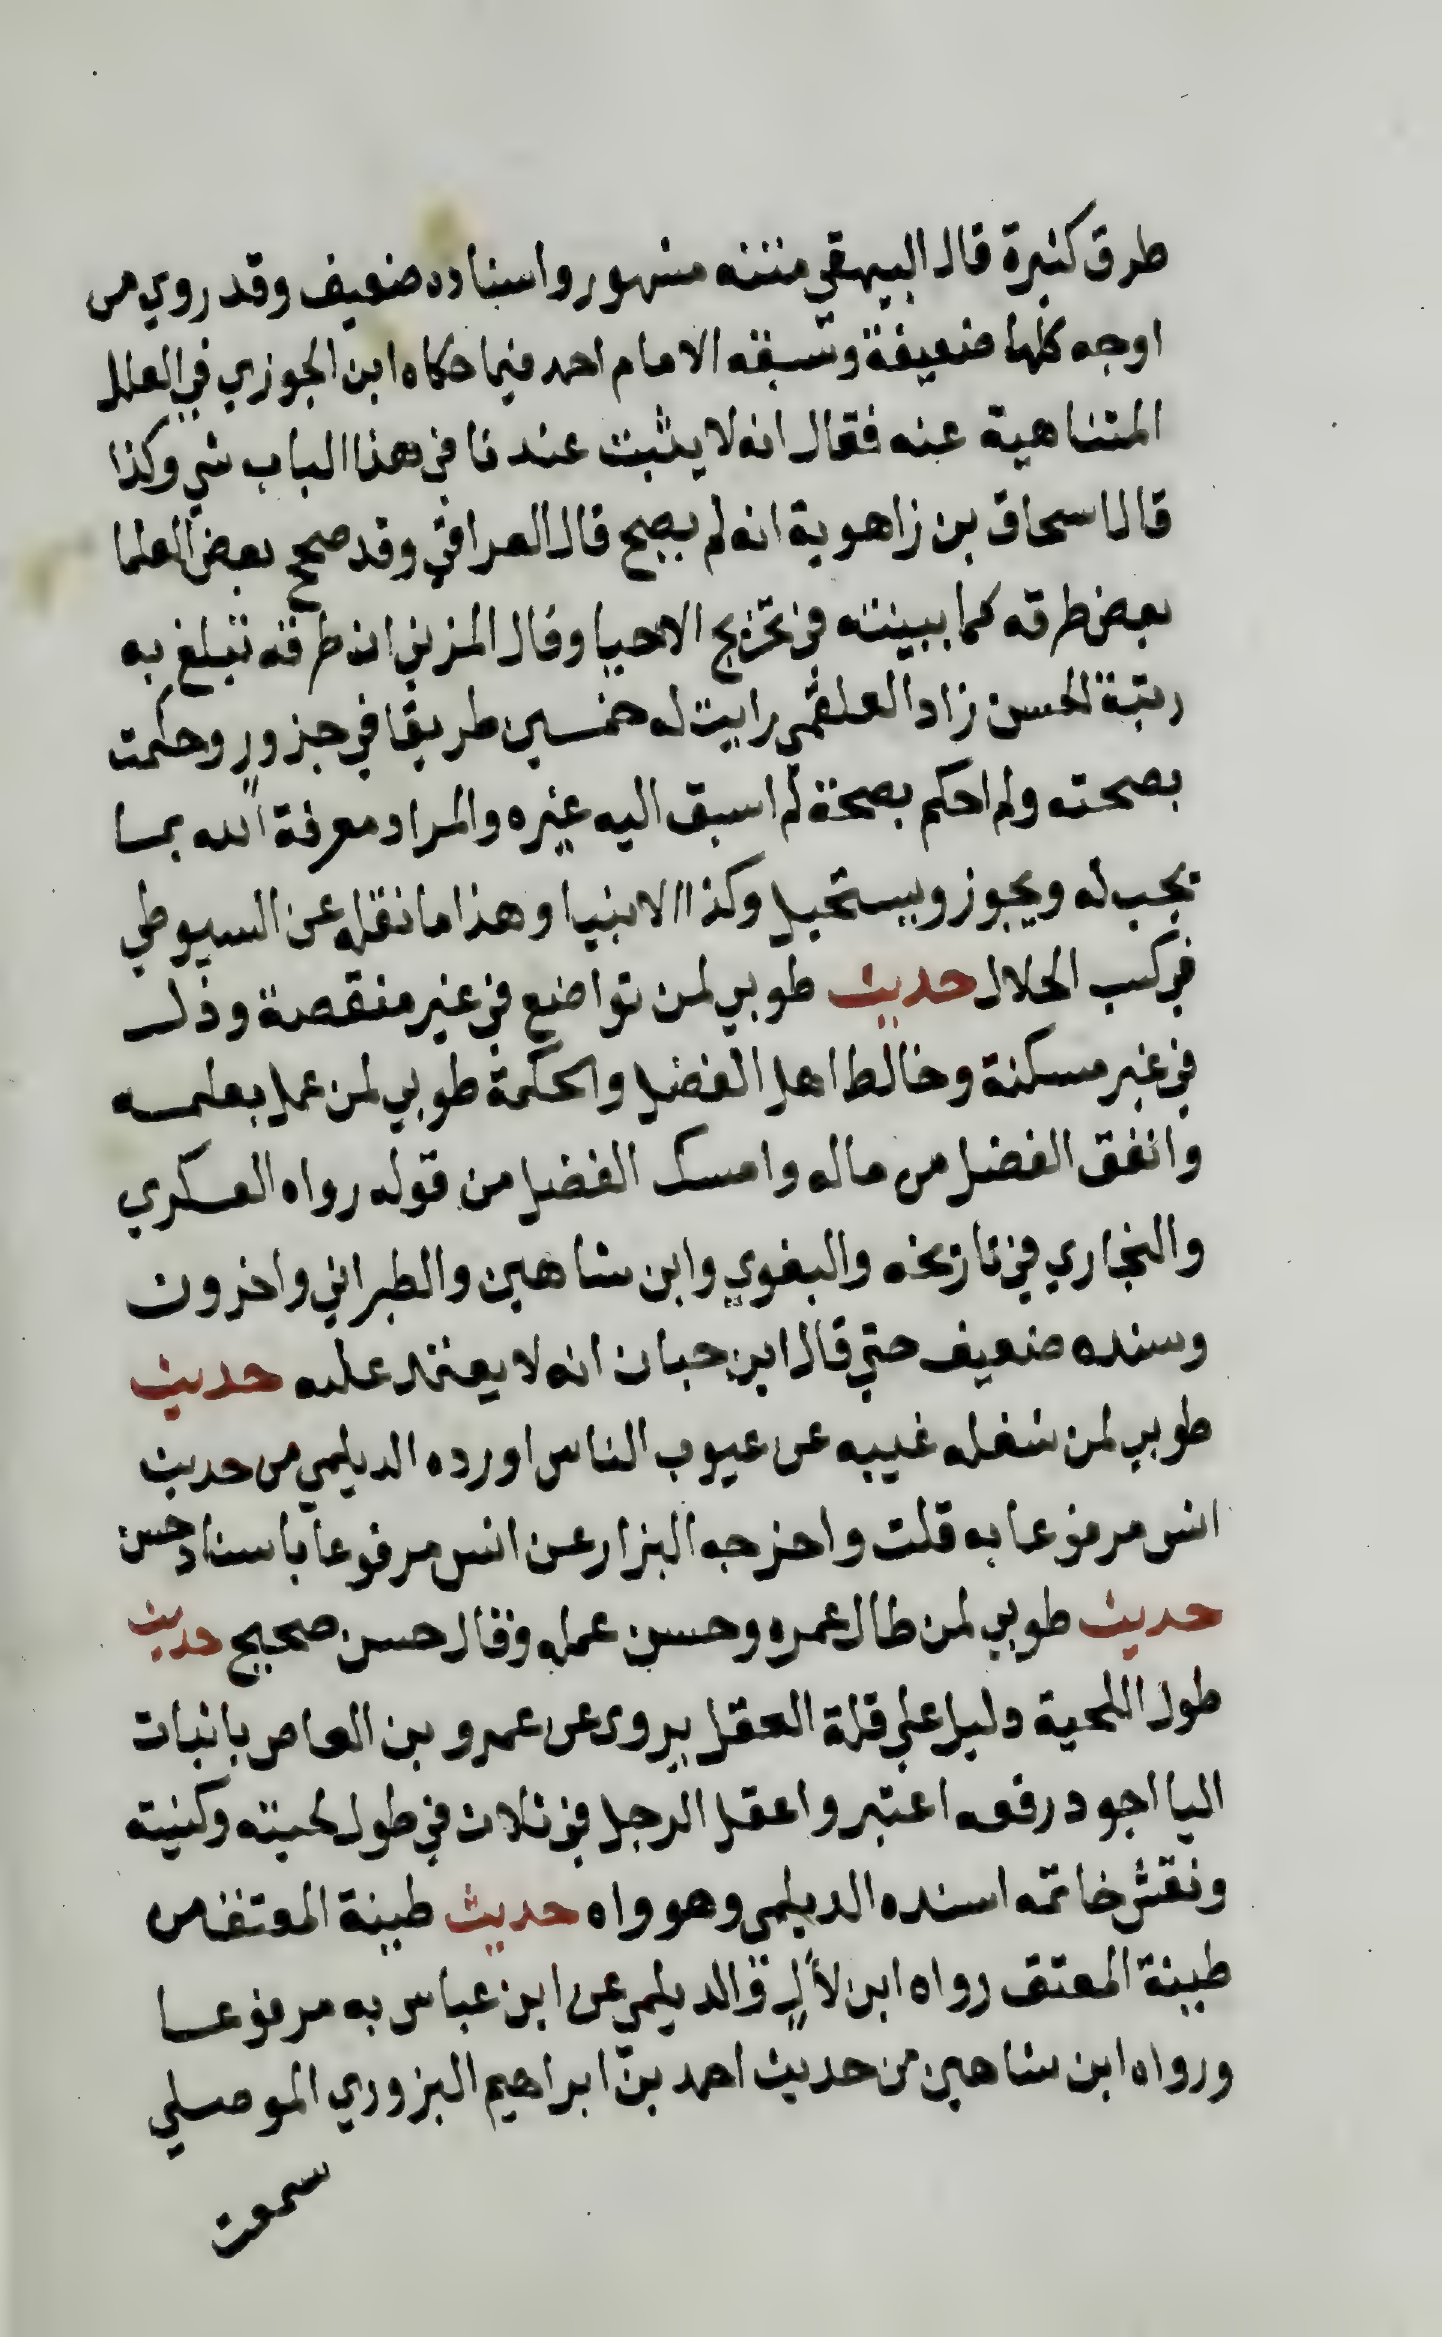 طرق كثيرة قال البيهقي متنه مشهور واسناده ضعيف وقد روي من
اوجه كلها ضعيفة وسبقه الامام احمد فيما حكاه ابن الجوزي في العلل
المتناهية عنه فقال انه لا يثبت عندنا في هذا الباب شي وكذا
قال اسحاق بن زاهوية انه لم يصح قال العراقي وقد صحح بعض العلما
بعض طرقه كما ببينته في تخريج الاحيا وقال المزني ان طرقه تبلغ به
رتبة الحسن زاد العلقمي رايت له خمسين طريقا في جزور وحكمت
بصحته ولم احكم بصحة لم اسبق اليه غيره والمراد معرفة الله بما
يجب له ويجوز ويستحيل وكذا الانبيا وهذا ما نقله عن السيوطي
في كسب الحلال حديث طوبي لمن تواضع في غير منقصة وذل
في غير مسكنة وخالط اهل الفضل والحكمة طوبي لمن عمل بعلمه
وانفق الفضل من ماله وامسك الفضل من قوله رواه العسكري
والبخاري في تاريخه والبغوي وابن شاهين والطبراني واخرون
وسنده ضعيف حتي قال ابن حبان انه لا يعتمد عليه حديث
طوبي لمن شغله عيبه عن عيوب الناس اورده الديلمي من حديث
انس مرفوعا به قلت واخرجه البزار عن انس مرفوعا باسناد حسن
حديث طوبي لمن طال عمره وحسن عمله وقال حسن صحيح حديث
طول اللحية دليل علي قلة العقل يروى عن عمرو بن العاص باثبات
اليا اجود رفعه اعتبروا عقل الرجل في ثلاث في طول لحيته وكنيته
ونقش خاتمه اسنده الديلمي وهو واه حديث طينة المعتق من
طينة المعتق رواه ابن لأل والديلمي عن ابن عباس به مرفوعا
ورواه ابن شاهين من حديث احمد بن ابراهيم البزوري الموصلي
سمعت